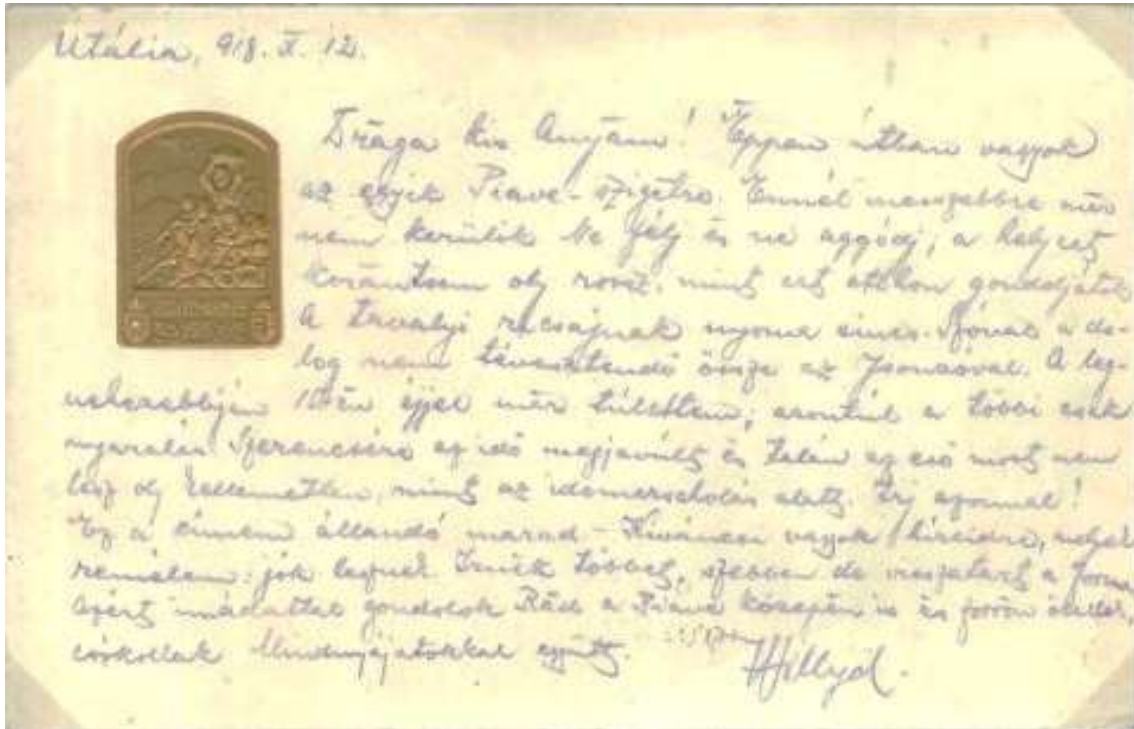 Utália, 918. X. 12.
Drága kis Anyám! Éppen útban vagyok
az egyik Piave-szigetre. Ennél messzebbre már
nem kerülök Ne félj és ne aggódj, a helyzet
korántsem oly rossz, mint ezt otthon gondoljátok
A tavalyi nyoma sincs. Szóval a do-
log nem tévesztendő össze az Isonzóval. A leg-
nehezebbjén éjjel már túlestem, azontúl a többi csak
nyaralás. Szerencsére az idő megjavult és talán az eső most nem
lesz oly kellemetlen, mint az alatt. Írj azonnal!
Ez a címem állandó marad - Kíváncsi vagyok híreidre, melyek
remélem: jók lesznek. Írnék többet, szebben de
Azért imádattal gondolok Rád a Piave közepén is és forrón ölellek,
csókollak Mindnyájatokkal együtt.